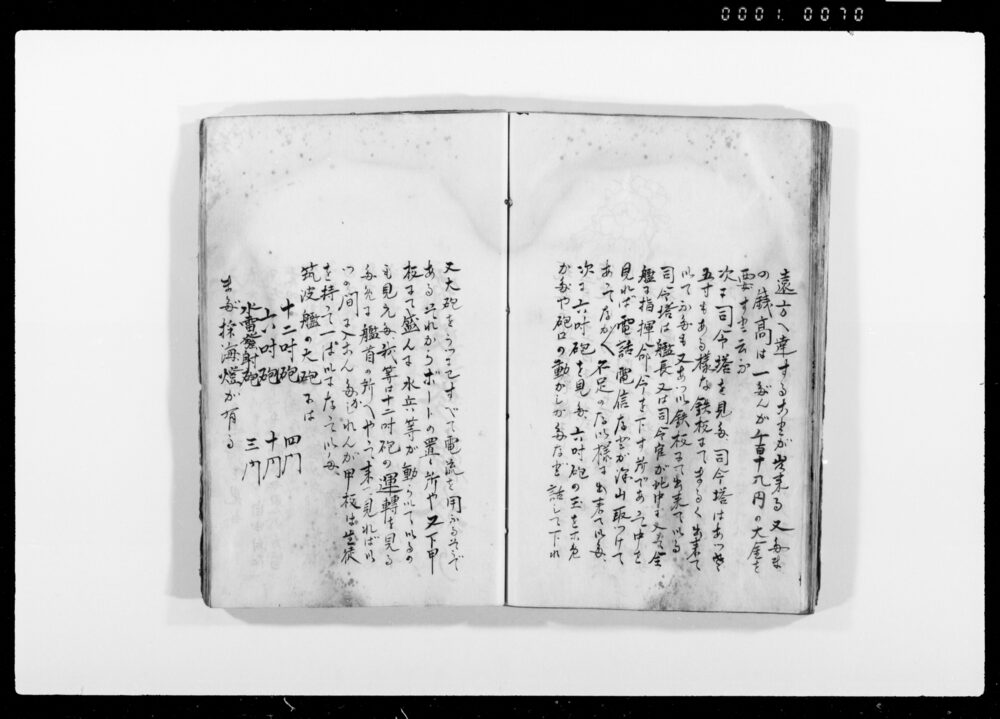 0001 0070
遠方へ達する事が出来る 又たま
の錢高は一ぱつが千百十九円の大金を
要する云ふ
次に司令塔を見た、司令塔はあつさ
五寸もある様な鉄板にてまるく出来て
又あつい鉄板にて出来て以る
司令塔は艦長又は司令官が此中に
艦に指揮命令を下す所であつて中を
見れば電話電信などが澤山取つけて
あつてなかなか不足のない様に出来て以た、
次に六吋砲を見た、六吋砲の玉を
砲口の動かしかたなど話して下れ
又大砲をうつにはすべて電流を用ふるそうで
ある それからボートの置く所や又下甲
板にて盛んに水兵等が動いて以るの
も見えた、我等は十二吋砲の運轉を見る
艦首の所へやつて来て見れば以
つの間に か れんが甲板は生徒
を持つて一ぱいになつて以た
筑波艦の大砲には
十二吋砲 四門
六吋砲 十門
水雷発射砲 三門
まだ探海燈が有る